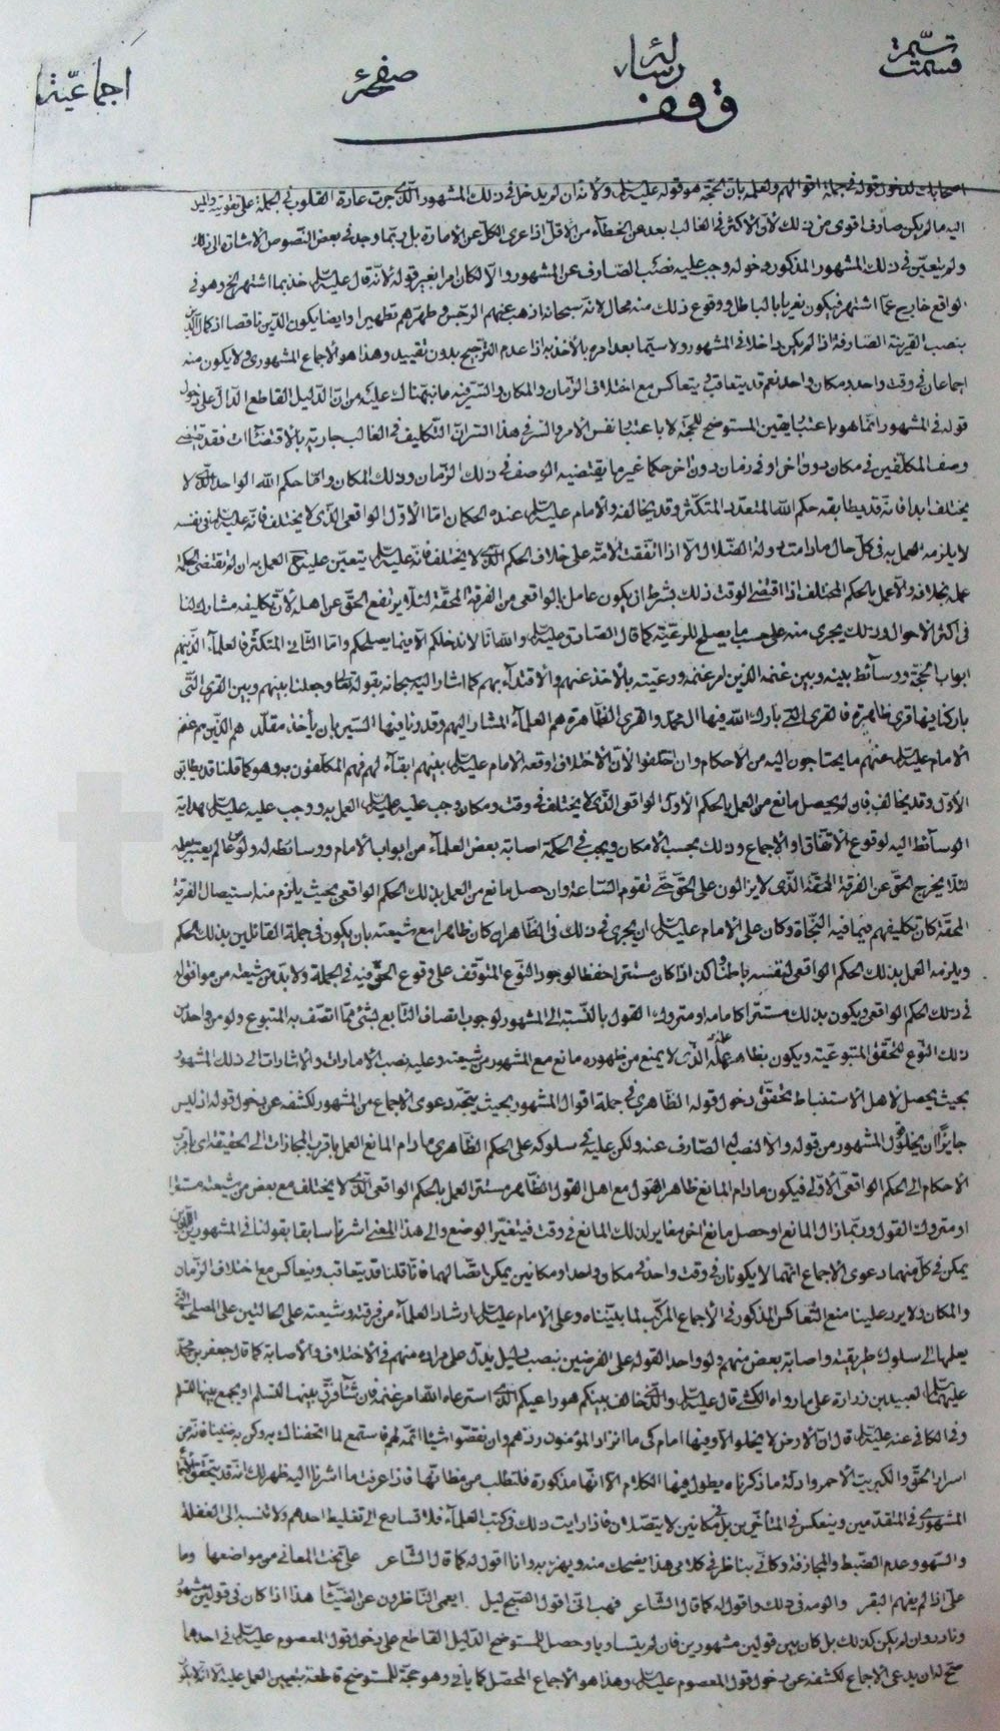 تتمّة قسمت
رسالهٔ
صفحهٔ
اجماعيّة
وقف
لدخول قوله في جملة اقوالهم ولعله بان الحجّة هو قوله عليه السلام ولانه ان لم يدخل في ذلك المشهور الّذي جرت عادة القلوب في الجملة على تقويته والميل
اليه ما لم يكن صارف اقوى من ذلك لان الاكثر في الغالب بعد عن الخطاء من الاقل اذا عرى الكل عن الامارة بل ربّما وجد في بعض النّصوص الاشارة الى ذلك
ولم يتعيّن في ذلك المشهور المذكور دخوله وجب عليه نصب الصّارف عن المشهور والّا لكان امرا بغير قوله لانّه قال عليه السلام خذ بما اشتهر الخ وهو في
الواقع خارج عمّا اشتهر فيكون يغريا بالباطل ووقوع ذلك منه محال لانّه سبحانه اذهب عنهم الرّجس وطهّرهم تطهيرا وايضا يكون الدّين ناقصا اذ كمال الدّين
بنصب القرينة الصّارفة اذا لم يكن داخلا في المشهور ولا سيّما بعد امره بالاخذ به اذا عدم التّرجيح بدون تقييد وهذا هو الاجماع المشهوري ولا يكون منه
اجماعان في وقت واحد ومكان واحد نعم قد يتعاقب ويتعاكس مع اختلاف الزّمان والمكان والسّر فيه ما نبّهناك عليه من انّ الدّليل القاطع الدّال على دخول
قوله في المشهور انّما هو باعتبار يقين المستوضح للحجّة لا باعتبار نفس الامر والسّر في هذا السّر انّ التّكليف في الغالب جارية بالاقتضاءات فقد يقتضي
وصف المكلّفين في مكان دون اخر او في زمان دون اخر حكما غير ما يقتضيه الوصف في ذلك الزّمان وذلك المكان وامّا حكم الله الواحد الّذي لا
يختلف ابدا فانّه قد يطابقه حكم الله المتعدّد المتكثّر وقد يخالفه والامام عليه السلام عنده الحكمان امّا الاوّل الواقعي الّذي لا يختلف فانّه عليه السلام في نفسه
لا يلزمه العمل به في كلّ حال ما دامت دولة الضّلال الّا اذا اتّفقت الامّة على خلاف الحكم الّذي لا يختلف فانّه عليه السلام يتعيّن عليه ح العمل به ان لم تقتضي الحكمة
عمله بخلافه والا عمل بالحكم المختلف اذا اقتضى الوقت ذلك بشرط ان يكون عامل بالواقعي من الفرقة المحقّة لئلّا يرتفع الحقّ عن اهله لانّ تكليفه مشارك لنا
في اكثر الاحوال وذلك يجري منه على حسب ما يصلح للرعيّة كما قال الصّادق عليه السلام والله انّا لا ندخلكم الّا فيما يصلحكم وامّا الثّاني المتكثّر فالعلماء الّذين هم
ابواب الحجّة ووسائط بينه وبين غنمه الذين لم غنمه ورعيّته بالاخذ عنهم والاقتداء بهم كما اشار اليه سبحانه بقوله تعالى وجعلنا بينهم وبين القرى الّتي
باركنا فيها قرى ظاهرة فالقرى الّتي بارك الله فيها ال محمّد والقرى الظّاهرة هم العلماء المشار اليهم وقدّرنا فيها السّير بان يأخذ مقلّد هم الذّين هم غنم
الامام عليه السلام عنهم ما يحتاجون اليه من الاحكام وان اختلفوا لانّ الاختلاف اوقعه الامام عليه السلام بينهم ابقاء لهم فهم المكلّفون به وهو كما قلنا قد يطابق
الاوّل وقد يخالف فان لم يحصل مانع من العمل بالحكم الاوّل الواقعي الّذي لا يختلف في وقت ومكان وجب عليه عليه السلام العمل به ووجب عليه عليه السلام هداية
الوسائط اليه لوقوع الاتّفاق او الاجماع وذلك بحسب الامكان ويجب في الحكمة اصابة بعض العلماء من ابواب الامام ووسائطه له ولو
لئلّا يخرج الحقّ عن الفرقة المحقّة الّذي لا يزالون على الحقّ حتّى تقوم السّاعة وان حصل مانع من العمل بذلك الحكم الواقعي بحيث يلزم منه استيصال الفرقة
المحقّة كان تكليفهم فيما فيه النّجاة وكان على الامام عليه السلام ان يجري في ذلك في الظّاهر ان كان ظاهرا مع شيعته بان يكون في جملة القائلين بذلك الحكم
ويلزمه العمل بذلك الحكم الواقعي لنفسه باطنا وكذا اذا كان مستترا حفظا لوجود النّوع المتوقّف على وقوع الحقّ فيه في الجملة ولا بدّ من شيعته من موافق له
في ذلك الحكم الواقعي ويكون بذلك مستترا كامامه او متروك القول بالنّسبة الى المشهور لوجوب اتصاف التّابع بشئ ممّا اتصف به المتبوع ولو من واحد من
ذلك النّوع لتحقّق المتبوعيّة ويكون بظاهر عمله الّذي لا يمنع من ظهوره مانع مع المشهور من شيعته وعليه نصب الامارات والاشارات الى ذلك المشهور
بحيث يحصل لاهل الاستنباط تحقّق دخول قوله الظّاهري في جملة اقوال المشهور بحيث يتّجه دعوى الاجماع من المشهور لكشفه عن دخول قوله اذ ليس
جايزا ان يخلو قول المشهور من قوله والا لنصب لهم الصّارف عنه ولكن عليه في سلوكه على الحكم الظّاهري ما دام المانع العمل باقرب المجازات الى الحقيقة اي باقرب
الاحكام الى الحكم الواقعيّ الاوّلي فيكون ما دام المانع ظاهر القول مع اهل القول الظّاهر مستتر العمل بالحكم الواقعي الّذي لا يختلف مع بعض من شيعته مستترا
او متروك القول وربّما زال المانع او حصل مانع اخر مغاير لذلك المانع في وقت فيتغيّر الوضع والى هذا المعنى اشرنا سابقا بقولنا في المشهورين
يمكن في كلّ منهما دعوى الاجماع انّهما لا يكونان في وقت واحد في مكان واحد او مكانين يمكن اتّصالهما فانّا قلنا قد يتعاقب ويتعاكس مع اختلاف الزّمان
والمكان ولا يرد علينا منع التّعاكس المذكور في الاجماع المركّب لما بيّنّاه وعلى الامام عليه السلام ارشاد العلماء من فرقته وشيعته على الحالتين على المصلحة الّتي
يعلمها الى سلوك طريقته واصابة بعض منهم ولو واحد القوله على الفرضين بنصب دليل يدلّ على مراده منهم في الاختلاف والاصابة كما قال جعفر بن محمّد
عليهما السلام لعبيد بن زرارة على ما رواه الكشّي قال عليه السلام والّذي خالف بينكم هو راعيكم الّذي استرعاه الله امر غنمه فان شاء فرّق بينها لتسلم او يجمع بينها لتسلم
وفي الكافي عنه عليه السلام قال انّ الارض لا يخلو الّا وفيها امام كي ما ان زاد المؤمنون ردّهم وان نقصوا شيئا اتمّه لهم فاستمع لما اتحفناك به وكن به ضنينا فانّه من
اسرار الحقّ والكبريت الاحمر وادلّة ما ذكرناه يطول فيها الكلام الّا انّها مذكورة فلتطلب من مظانّها فاذا عرفت ما اشرنا اليه ظهر لك انّه قد يتحقّق
المشهوري في المتقدّمين وينعكس في المتأخّرين بل في مكانين لا يتّصلان فاذا رايت ذلك في كتب العلماء فلا تسارع الى تغليط احدهم ولا تنسبه الى الغفلة
والسّهو وعدم الضّبط والمجازفة وكانّي بناظر في كلامي هذا يضحك منه ويهزء به وانا اقول له كما قال الشّاعر علىّ نحت المعاني من مواضعها وما
علىّ اذا لم يفهم البقر والومه في ذلك واقول له كما قال الشّاعر فهب انّي اقول الصّبح ليل ايعمى النّاظرون عن الضّياء هذا اذا كان في قولين مشهور
ونادر وان لم يكن كذلك بل كان بين قولين مشهورين فان لم يتساويا وحصل للمستوضح الدّليل القاطع على دخول قول المعصوم عليه السلام في احدهما
صحّ له ان يدعى الاجماع لكشفه عن دخول قول المعصوم عليه السلام وهذا هو الاجماع المحصّل كما ياتي وهو حجّة للمستوضح قاطعة بتعيين العمل عليه